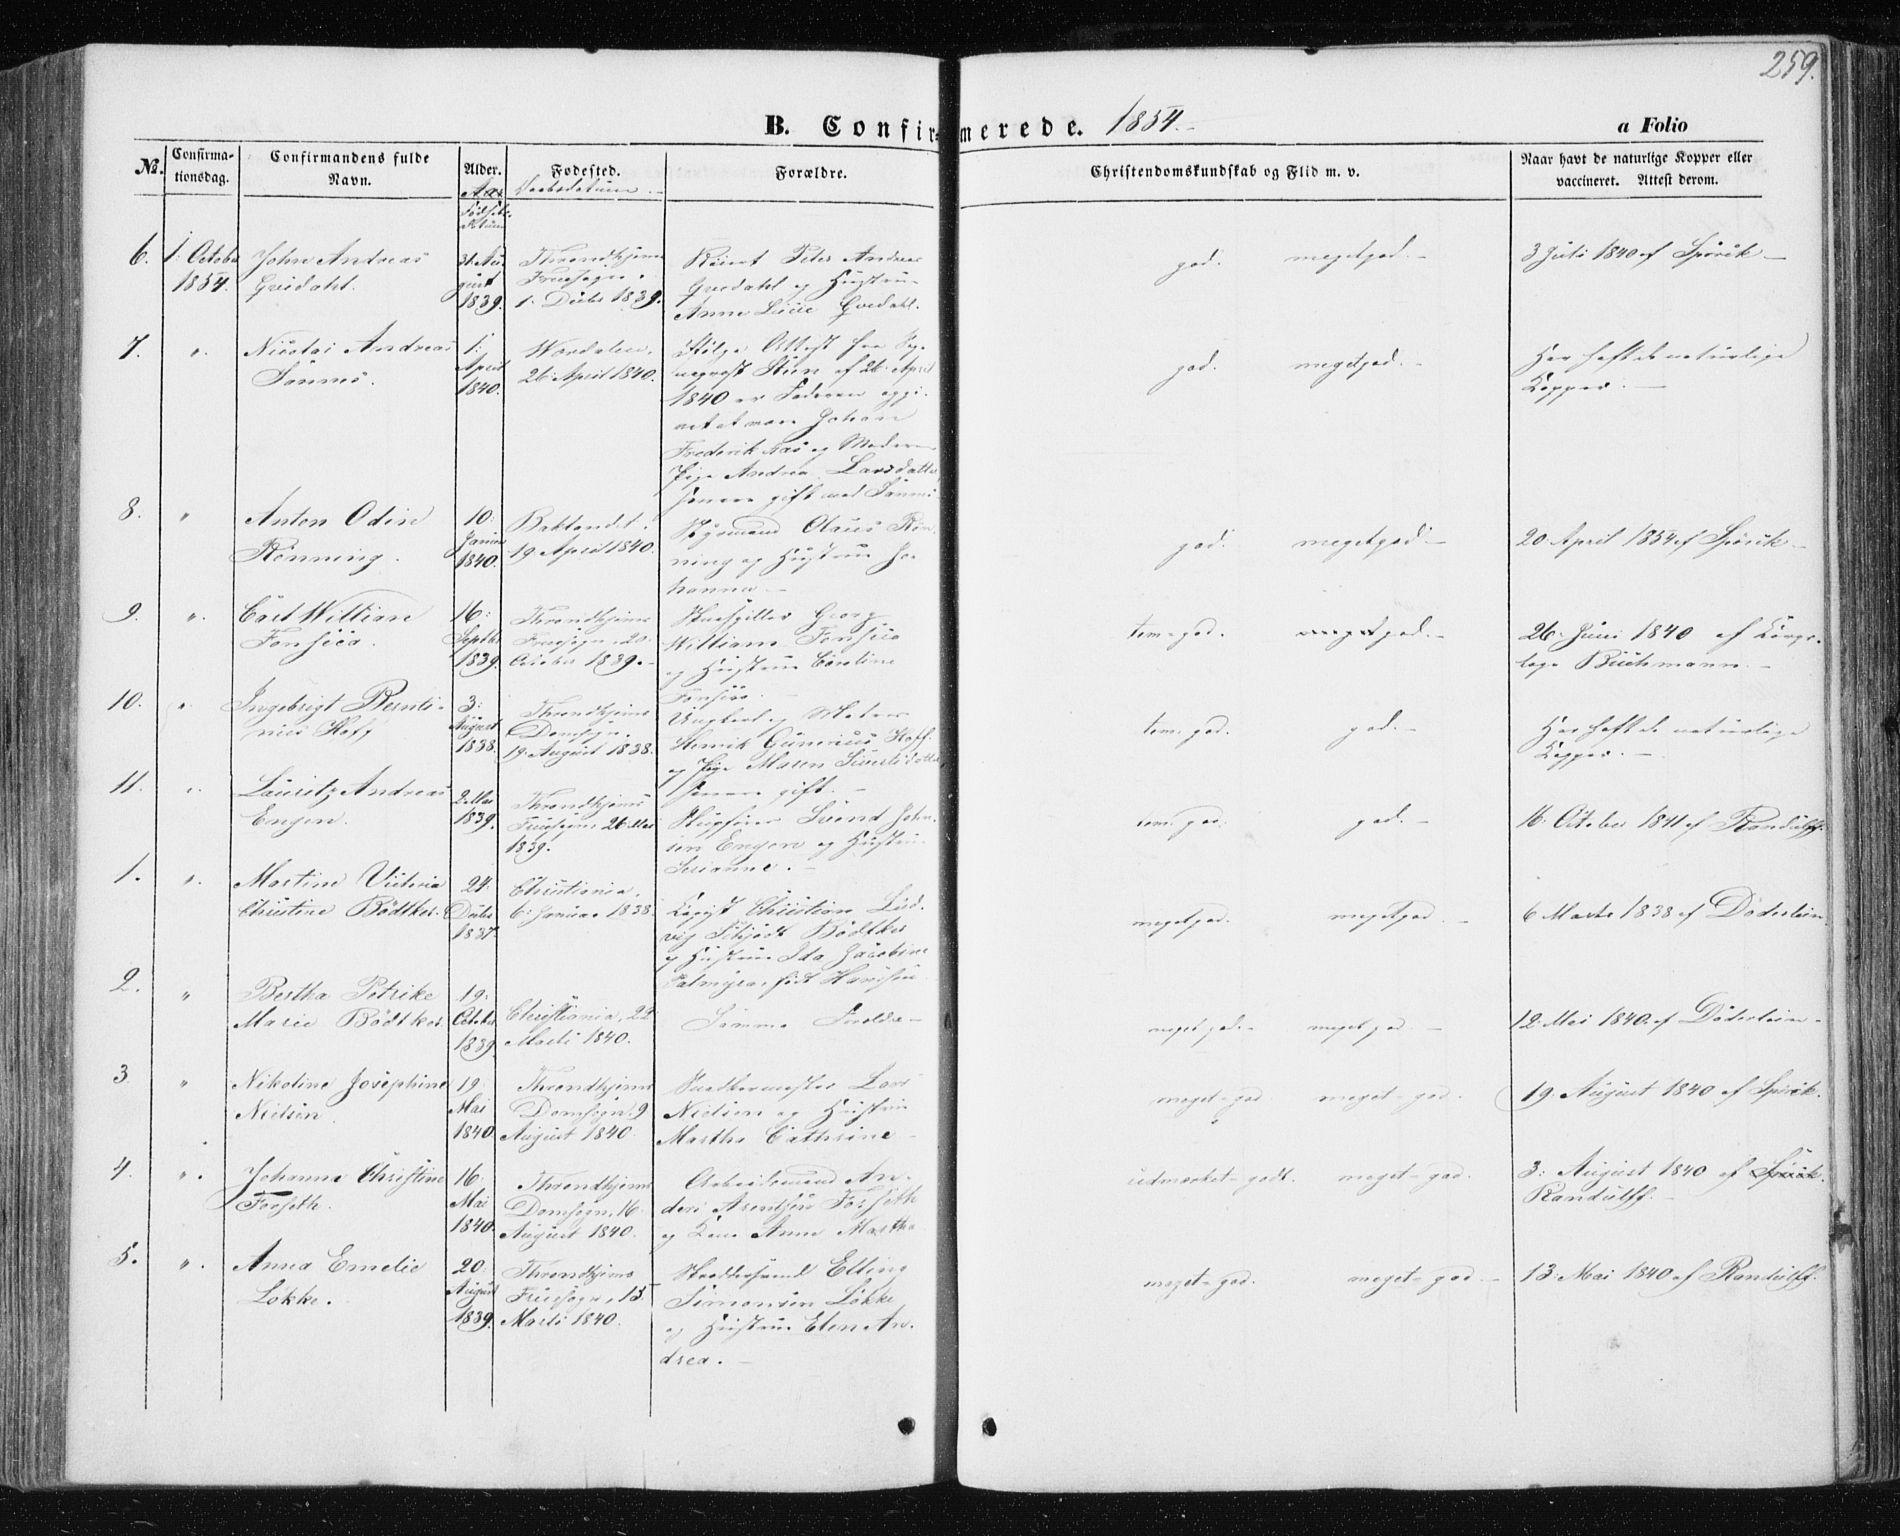 259.
B. Confirmerede. 1854.
a Folio
No.
Confirma-
tionsdag.
Confirmandens fulde
Navn.
Alder.
Fødested.
Daabsdatum
Forældre.
Christendomskundskab og Flid m. v.
Naar havt de naturlige Kopper eller
vaccineret. Attest derom.
6.
1. October
1854.
John Andreas
31. Au-
gust
1839.
Throndhjems
Fruesogn.
1. Decbr 1839.
Peter Andreas
og Hustru
god. megetgod.
3 Juli 1840 af
7.
Nicolai Andreas
1.
April
1840.
Værdalen.
26. April 1840.
Attest fra
af 26. April
1840 er Faderen
Johan
Frederik og Moderen
Pige Andrea Larsdatter
senere gift med
god. megetgod.
Har haft de naturlige
Kopper.
8.
Anton Odin
Rønning.
10.
Januar
1840.
Baklandet.
19. April 1840.
Olaus Røn-
ning og Hustru Jo-
hanna
god. megetgod.
20 April 1854 af
9.
Carl William
Fonseca.
16.
Septbr
1839.
Throndhjems
Fruesogn, 20.
October 1839.
Georg
William Fonseca
og Hustru Caroline
Fonseca.
tem. god. god.
26. Juni 1840 af
læge Buchmann.
10.
Ingebrigt Bernti-
nus Hoff
3.
August
1838.
Throndhjems
Domsogn.
19. August 1838.
Ungkarl og
Henrik Gunerius Hoff
og Pige Maren Sivertsdatter
senere gift.
tem. god. god.
Har haft de naturlige
Kopper.
11.
Lauritz Andreas
Engen.
2. Mai
1839.
Throndhjems
Fruesogn, 26. Mai
1839.
Svend John-
sen Engen og Hustru
Serianne.
tem. god. god.
16. October 1841 af Randulff.
1.
Martine Victoria
Christine Bødtker.
24.
Decbr
1837.
Christiania.
6. Januar 1838.
Kopist Christian Lud-
vig Bødtker
og Hustru Ida Jacobine
Palmyra, født
megetgod. megetgod.
6 Marts 1838 af Døderlein
2.
Bertha Petrike
Marie Bødtker.
19.
October
1839.
Christiania, 22
Marts 1840.
Samme Forældre
meget god. meget god.
12. Mai 1840 af Døderlein
3.
Nikoline Josephine
Nielsen.
19.
Mai
1840.
Throndhjems
Domsogn, 9
August 1840.
Snedkermester Lars
Nielsen og Hustru
Martha Cathrine
meget-god meget-god.
19. August 1840 af
4.
Johanna Christine
Forseth.
16.
Mai
1840.
Throndhjems
Domsogn, 16.
August 1840.
Arbeidsmand An-
ders Arentsen Forseth
og Kone Anne Martha
udmærket-godt. meget-god.
3. August 1840 af
Randulff.
5.
Anna Emelie
Løkke.
20.
August
1839.
Throndhjems
Fruesogn, 15
Marts 1840.
Elling
Simonsen Løkke
og Hustru Elen An-
drea.
meget-god. meget-god
13. Mai 1840 af Randulff.